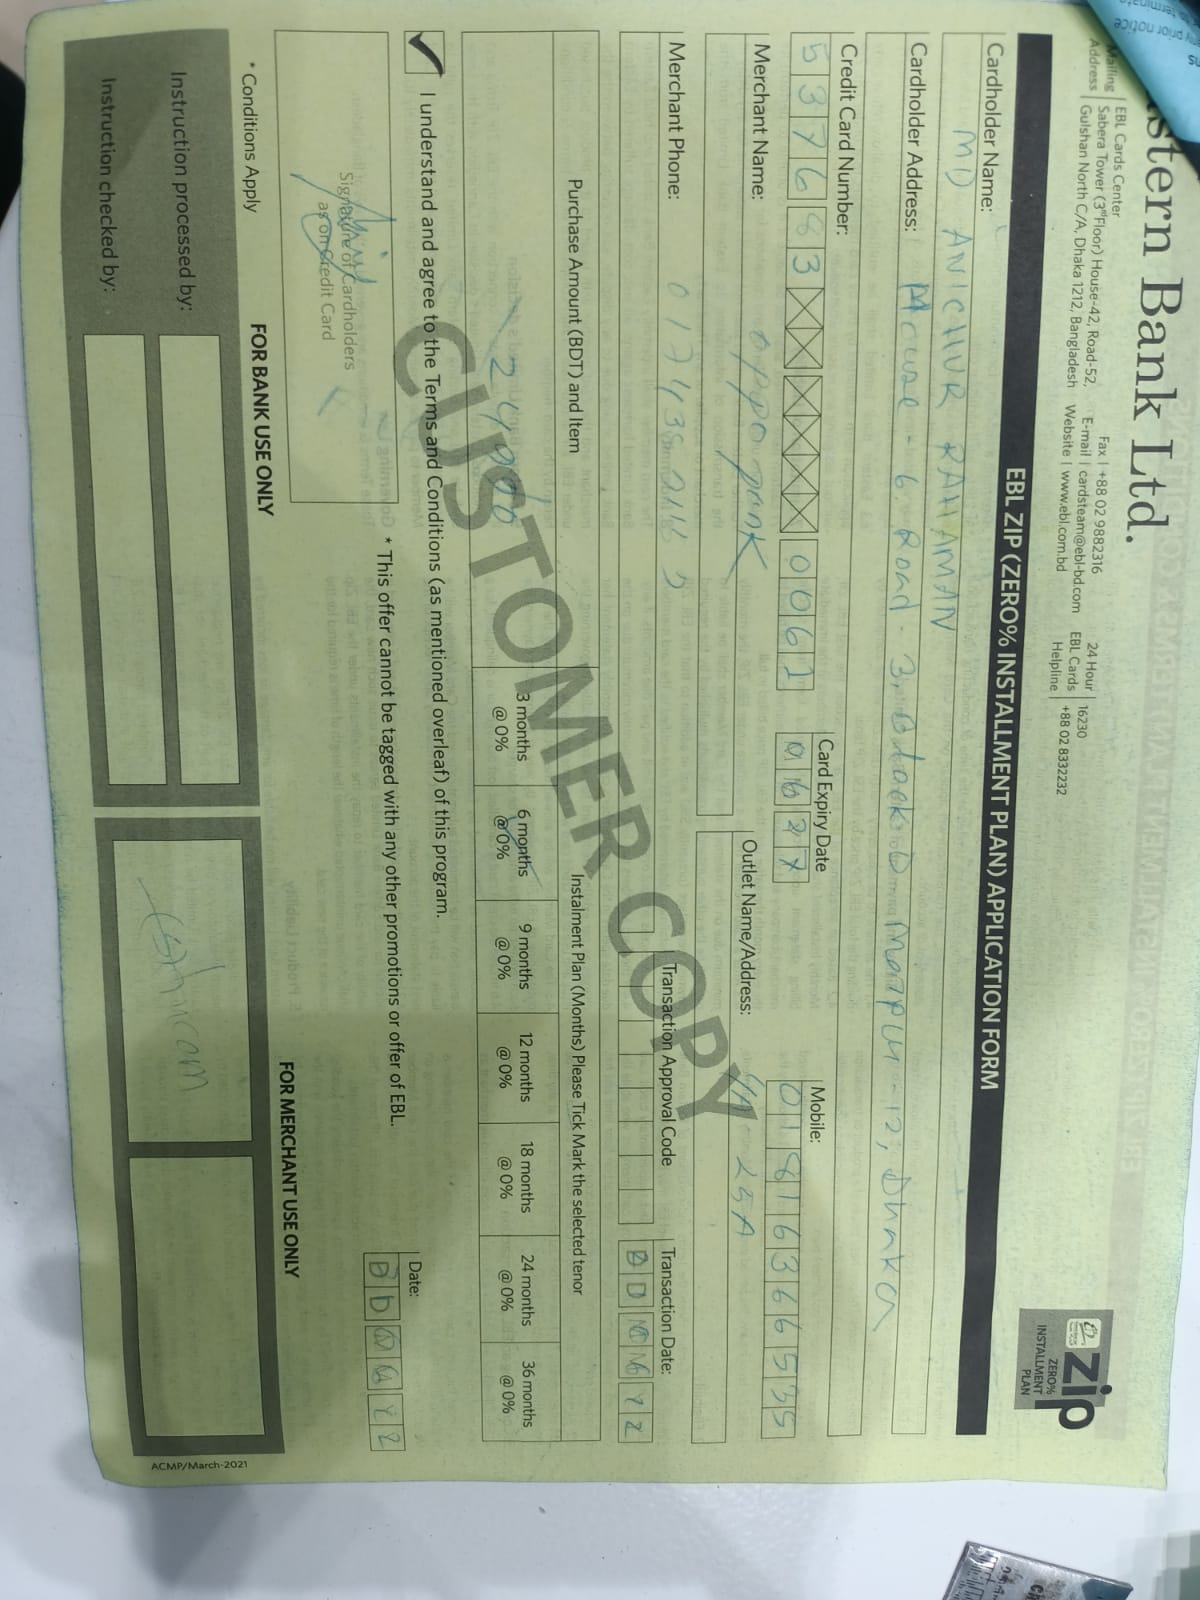 stern Bank Ltd.
Mailing Address
EBL Cards Center
Sabera Tower (3rd Floor) House-42, Road-52,
Gulshan North C/A, Dhaka 1212, Bangladesh
Fax | +88 02 9882316
E-mail | cardsteam@ebl-bd.com
Website | www.ebl.com.bd
24 Hour EBL Cards Helpline
16230
+88 02 8332232
zip
ZERO%
INSTALLMENT
PLAN
EBL ZIP (ZERO% INSTALLMENT PLAN) APPLICATION FORM
Cardholder Name:
MD ANICHUR RAHAMAN
Cardholder Address: 6 Road - 3, Block-D Mirpur - 12, Dhaka
Credit Card Number:
Card Expiry Date
Mobile:
5376 83 0061
01816366535
Merchant Name: oppo
Outlet Name/Address: 25A
Merchant Phone:
Transaction Approval Code
Transaction Date:
Purchase Amount (BDT) and Item
Instalment Plan (Months) Please Tick Mark the selected tenor
3 months @ 0%
6 months @ 0%
9 months @ 0%
12 months @ 0%
18 months @ 0%
24 months @ 0%
36 months @ 0%
CUSTOMER COPY
✓ I understand and agree to the Terms and Conditions (as mentioned overleaf) of this program.
Date:
* This offer cannot be tagged with any other promotions or offer of EBL.
Signature of Cardholders
as on Credit Card
* Conditions Apply
FOR BANK USE ONLY
FOR MERCHANT USE ONLY
Instruction processed by:
Instruction checked by:
ACMP/March-2021